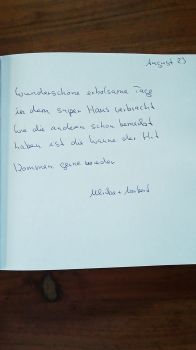 August 23
Wunderschöne erholsame Tage
in dem super Haus verbracht.
Wie die andern schon bemerkt
haben ist die Wanne der Hit
Kommen gerne wieder